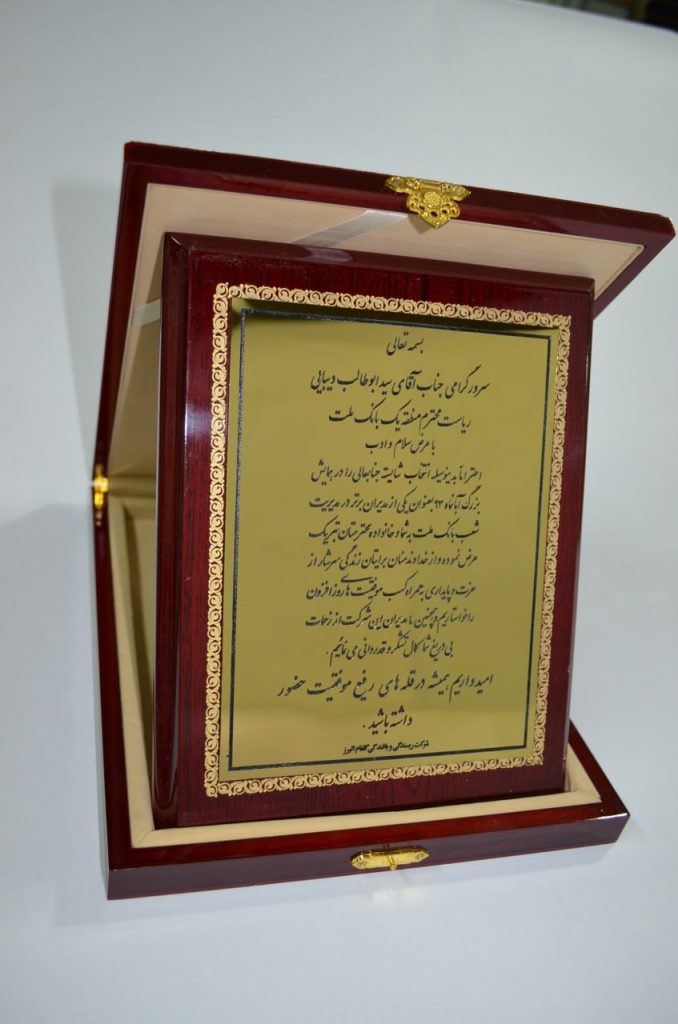 بسمه تعالی
سرور گرامی جناب آقای سید ابوطالب دیبایی
ریاست محترم منطقه یک بانک ملت
با عرض سلام و ادب
احتراماً بدینوسیله انتخاب شایسته جنابعالی را در همایش
بزرگ آبانماه ۹۳ بعنوان یکی از مدیران برتر در مدیریت
شعب بانک ملت به شما و خانواده محترمتان تبریک
عرض نموده و از خداوند منان برایتان زندگی سرشار از
عزت و پایداری به همراه کسب موفقیت های روز افزون
را خواستاریم و همچنین ما مدیران این شرکت از زحمات
بی دریغ شما کمال تشکر و قدردانی می نمائیم .
امیدواریم همیشه در قله های رفیع موفقیت حضور
داشته باشید .
شرکت ریسندگی و بافندگی گلفام البرز